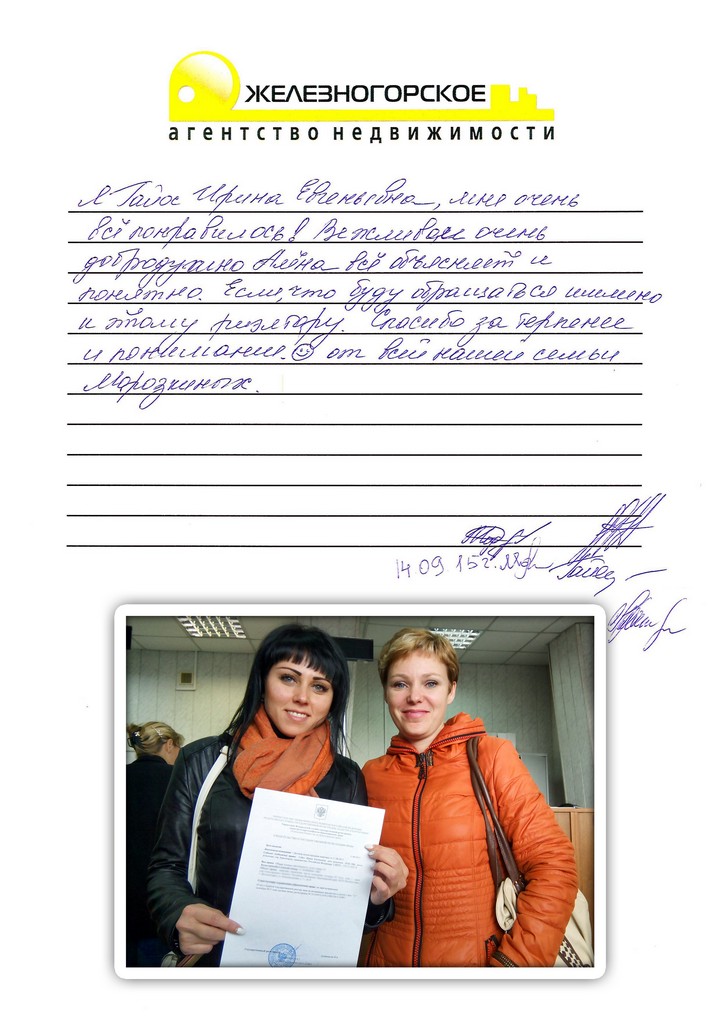 ЖЕЛЕЗНОГОРСКОЕ
агентство недвижимости
Я Гайос Ирина Евгеньевна, мне очень
всё понравилось! Вежливая очень
добродушно Алёна всё объясняет и
понятно. Если, что буду обращаться именно
к этому риэлтору. Спасибо за терпение
и понимание. ☺ от всей нашей семьи
Морозкиных.
14.09.15 г.